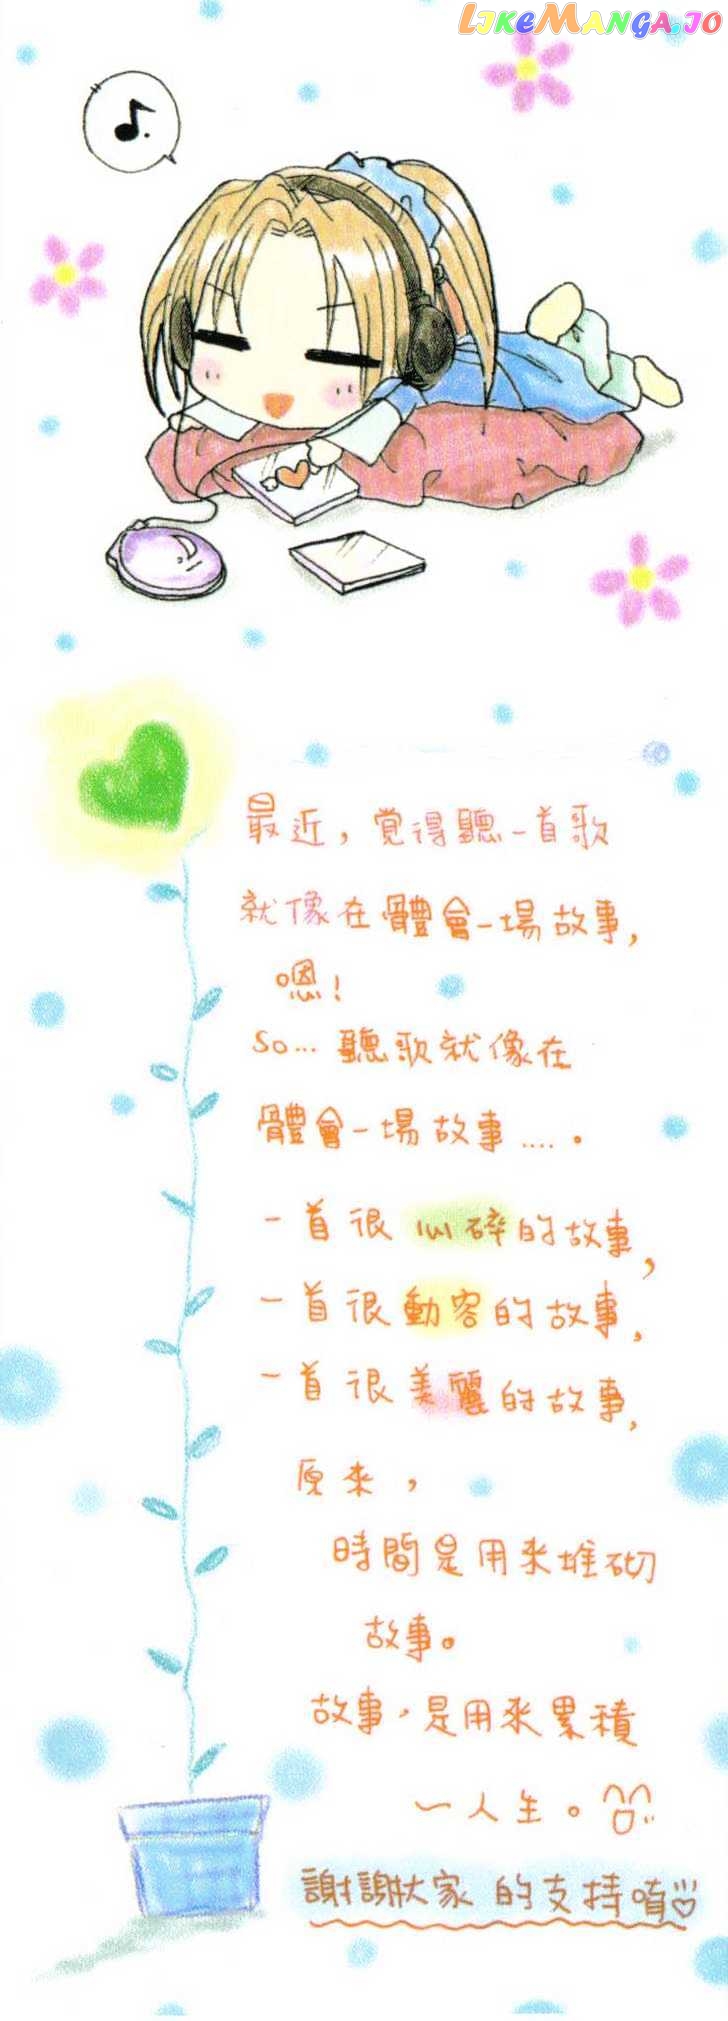 LIKEMANGA.IO
最近，覚得聽一首歌
就像在體會一場故事，
嗯！
So... 聽歌就像在
體會一場故事.....。
一首很心碎的故事，
一首很動容的故事，
一首很美麗的故事，
原來，
時間是用來堆砌
故事。
故事，是用來累積
一人生。
謝謝大家的支持唷